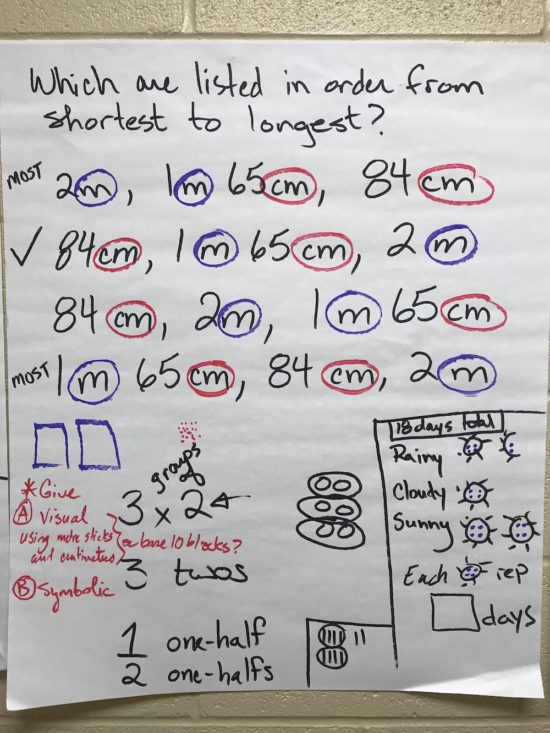 Which are listed in order from
shortest to longest?
most 2m, 1m 65cm, 84cm
✓ 84cm, 1m 65cm, 2m
84cm, 2m, 1m 65cm
most 1m 65cm, 84cm, 2m
groups
of
3 x 2
3 twos
1 one-half
2 one-halfs
*Give
A Visual
using meter sticks
and centimeters
or base 10 blocks?
B Symbolic
18 days total
Rainy
Cloudy
Sunny
Each rep
days